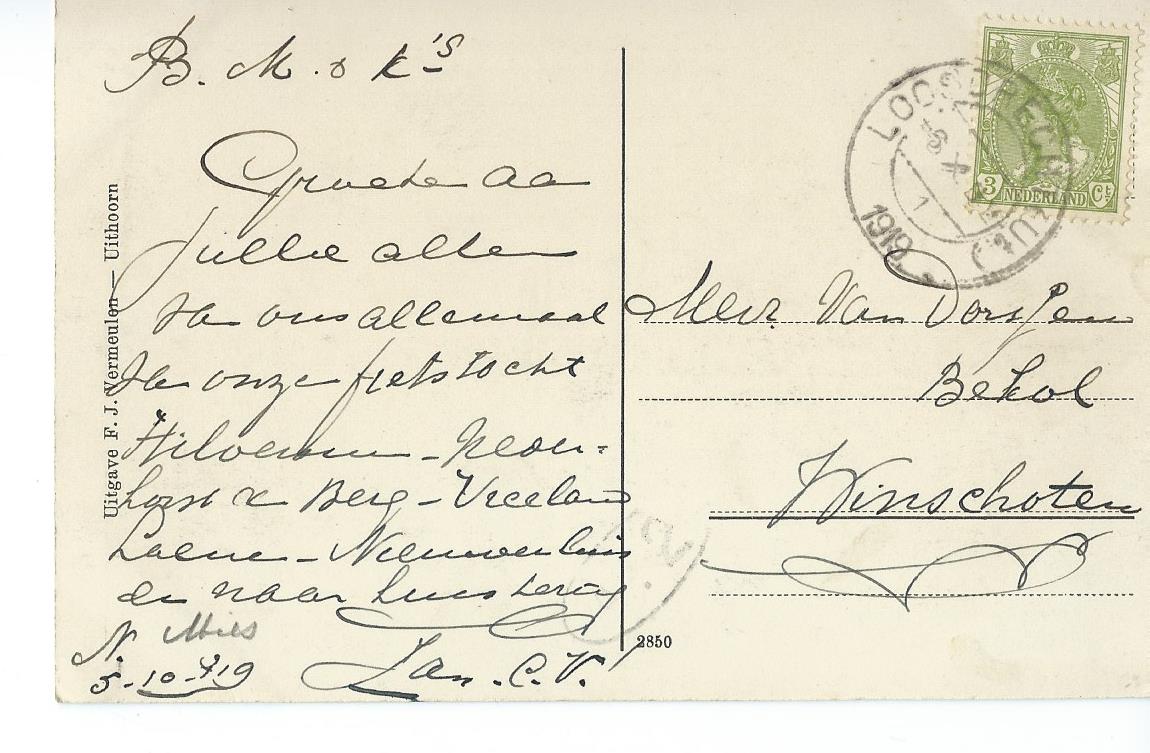 B. M. & k's
Groeten aa
jullie allen
van ons allemaal
van onze fietstocht
Hilversum - Neder=
horst d Berg - Vreeland
Loenen - Nieuwersluis
en naar huis terug
Jan. C.V.
N. Mies
5-10-'19
Uitgave F. J. Vermeulen — Uithoorn
2850
LOOSDRECHT
1919
3 NEDERLAND Ct
Mevr. Van Dorsten
Winschoten